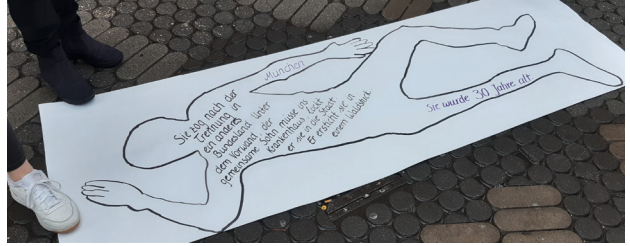 München
Sie zog nach der
Trennung in
ein anderes
Bundesland. Unter
dem Vorwand, der
gemeinsame Sohn müsse ins
Krankenhaus, lockt
er sie in die Stadt.
Er ersticht sie in
einem Waldstück
Sie wurde 30 Jahre alt